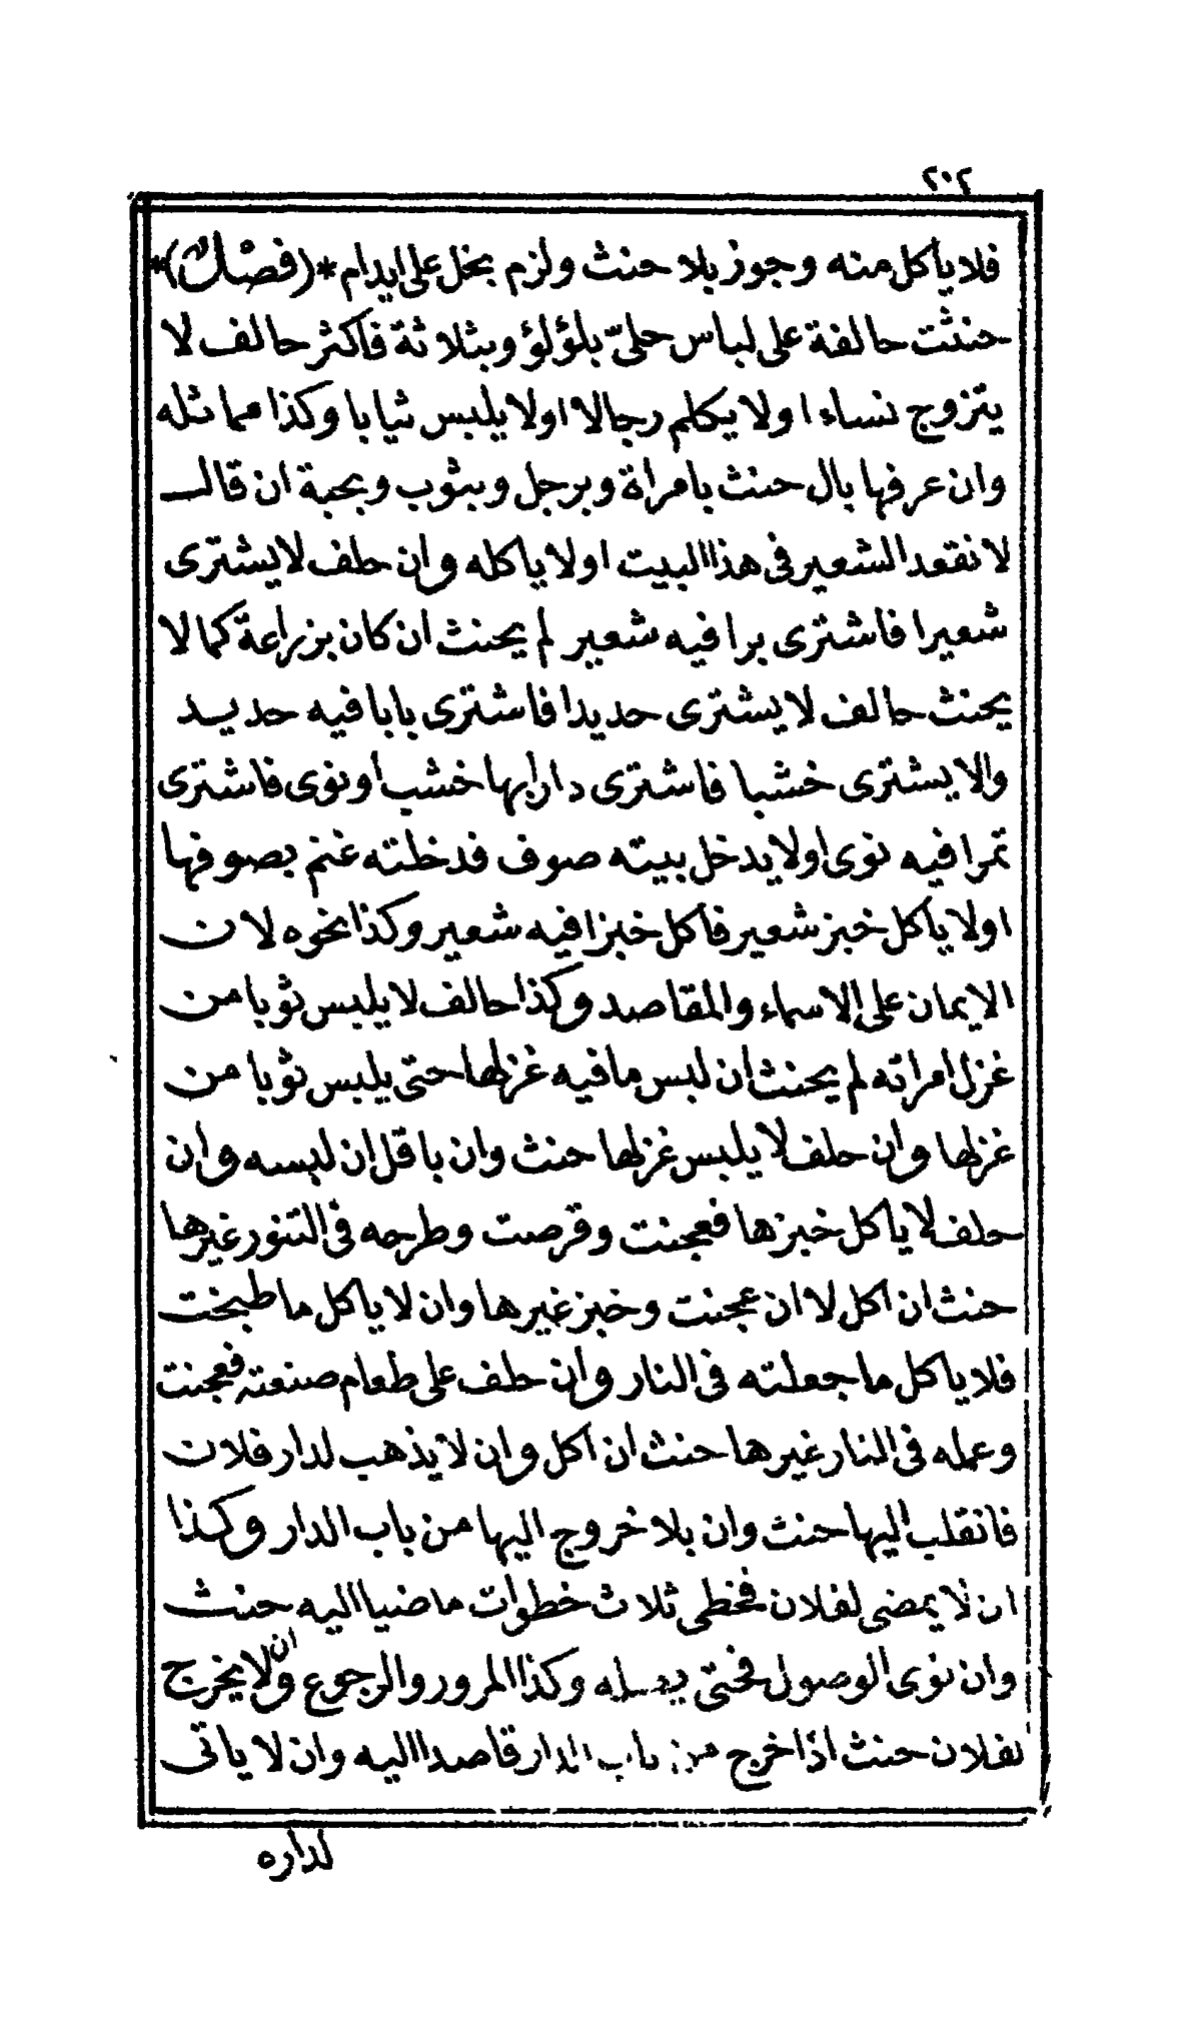 ٢٠٢
فلا ياكل منه وجوز بلا حنث ولزم بخل على ايدام *(فصل)*
حنثت حالفة على لباس حلىّ بلؤلؤ وبثلاثة فاكثر حالف لا
يتزوج نساء اولا يكلم رجالا اولا يلبس ثيابا وكذا مماثله
وان عرفها بال حنث بامراة وبرجل وبثوب وبحبة ان قال
لا نقعد الشعير فى هذا البيت اولا ياكله وان حلف لا يشترى
شعيرا فاشترى برا فيه شعير لم يحنث ان كان بزراعة كما لا
يحنث حالف لا يشترى حديدا فاشترى بابا فيه حديد
والا يشترى خشبا فاشترى دارابها خشب او نوى فاشترى
تمرا فيه نوى اولا يدخل بيته صوف فدخلته غنم بصوفها
اولا ياكل خبز شعير فاكل خبزا فيه شعير وكذا نحوه لان
الايمان على الاسماء والمقاصد وكذا حالف لا يلبس ثوبا من
غزل امراته لم يحنث ان لبس ما فيه غزلها حتى يلبس ثوبا من
غزلها وان حلف لا يلبس غزلها حنث وان باقل ان لبسه وان
حلف لا ياكل خبزها فعجنت وقرصت وطرحه فى التنور غيرها
حنث ان اكل لا ان عجنت وخبز غيرها وان لا ياكل ما طبخت
فلا ياكل ما جعلته فى النار وان حلف على طعام صنعته فعجنت
وعمله فى النار غيرها حنث ان اكل وان لا يذهب لدار فلان
فانقلب اليها حنث وان بلا خروج اليها من باب الدار وكذا
ان لا يمضى لفلان فخطى ثلاث خطوات ماضيا اليه حنث
وان نوى الوصول فحتى يصله وكذا المرور والرجوع وان لا يخرج
لفلان حنث اذا خرج من باب الدار قاصدا اليه وان لا ياتى
لداره